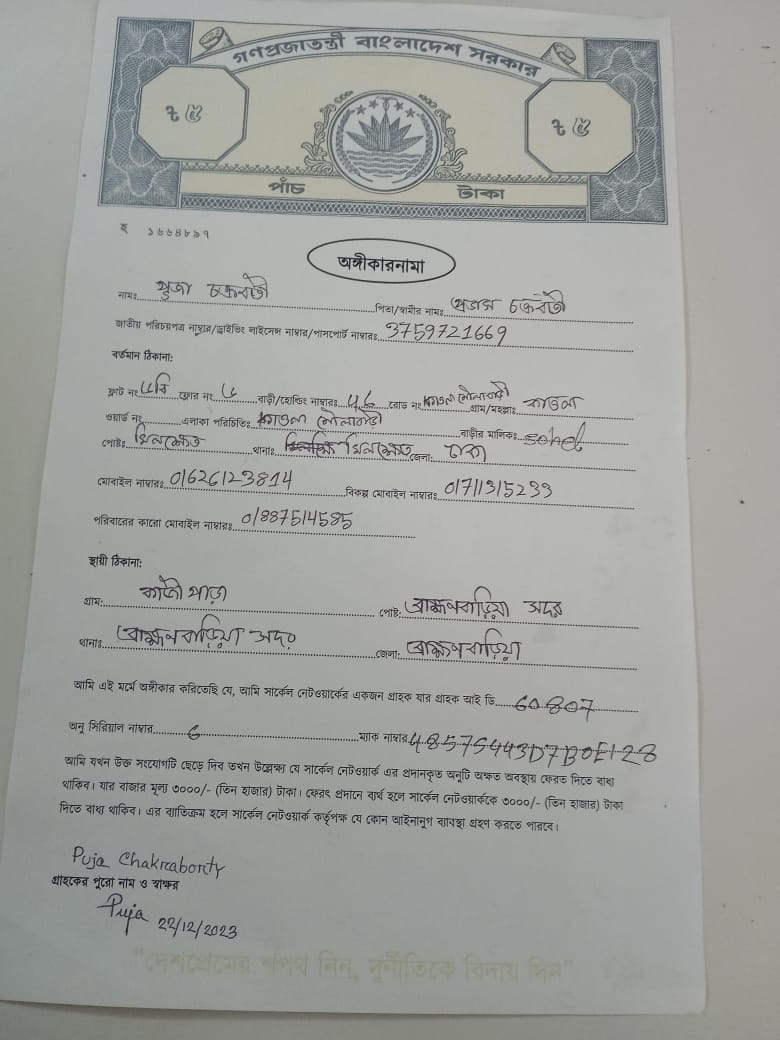 গণপ্রজাতন্ত্রী বাংলাদেশ সরকার
৳ ৫ ৳ ৫
পাঁচ টাকা
হ ১৬৬৪৮৯৭
অঙ্গীকারনামা
নামঃ পুজা চক্রবর্তী পিতা/স্বামীর নামঃ চক্রবর্তী
জাতীয় পরিচয়পত্র নাম্বার/ড্রাইভিং লাইসেন্স নাম্বার/পাসপোর্ট নাম্বারঃ 3759721669
বর্তমান ঠিকানা:
ফ্লাট নং ফ্লোর নং বাড়ী/হোল্ডিং নাম্বারঃ রোড নং কাওলা গ্রাম/মহল্লাঃ কাওলা
ওয়ার্ড নং এলাকা পরিচিতিঃ কাওলা বাড়ীর মালিকঃ sohel
পোষ্টঃ খিলক্ষেত থানাঃ খিলক্ষেত জেলা: ঢাকা
মোবাইল নাম্বারঃ 01626123814 বিকল্প মোবাইল নাম্বারঃ 01711315233
পরিবারের কারো মোবাইল নাম্বারঃ 01887514585
স্থায়ী ঠিকানা:
গ্রাম: পাড়া পোষ্ট: ব্রাহ্মণবাড়িয়া সদর
থানাঃ ব্রাহ্মণবাড়িয়া সদর জেলা: ব্রাহ্মণবাড়িয়া
আমি এই মর্মে অঙ্গীকার করিতেছি যে, আমি সার্কেল নেটওয়ার্কের একজন গ্রাহক যার গ্রাহক আই ডি 60807
অনু সিরিয়াল নাম্বারঃ 6 ম্যাক নাম্বার 48575443D7B0E128
আমি যখন উক্ত সংযোগটি ছেড়ে দিব তখন উল্লেক্ষ্য যে সার্কেল নেটওয়ার্ক এর প্রদানকৃত অনুটি অক্ষত অবস্থায় ফেরত দিতে বাধ্য
থাকিব। যার বাজার মূল্য ৩০০০/- (তিন হাজার) টাকা। ফেরৎ প্রদানে ব্যর্থ হলে সার্কেল নেটওয়ার্ককে ৩০০০/- (তিন হাজার) টাকা
দিতে বাধ্য থাকিব। এর ব্যতিক্রম হলে সার্কেল নেটওয়ার্ক কর্তৃপক্ষ যে কোন আইনানুগ ব্যবস্থা গ্রহণ করতে পারবে।
Puja Chakraborty
গ্রাহকের পুরো নাম ও স্বাক্ষর
Puja 22/12/2023
"দেশপ্রেমের শপথ নিন, দুর্নীতিকে বিদায় দিন"